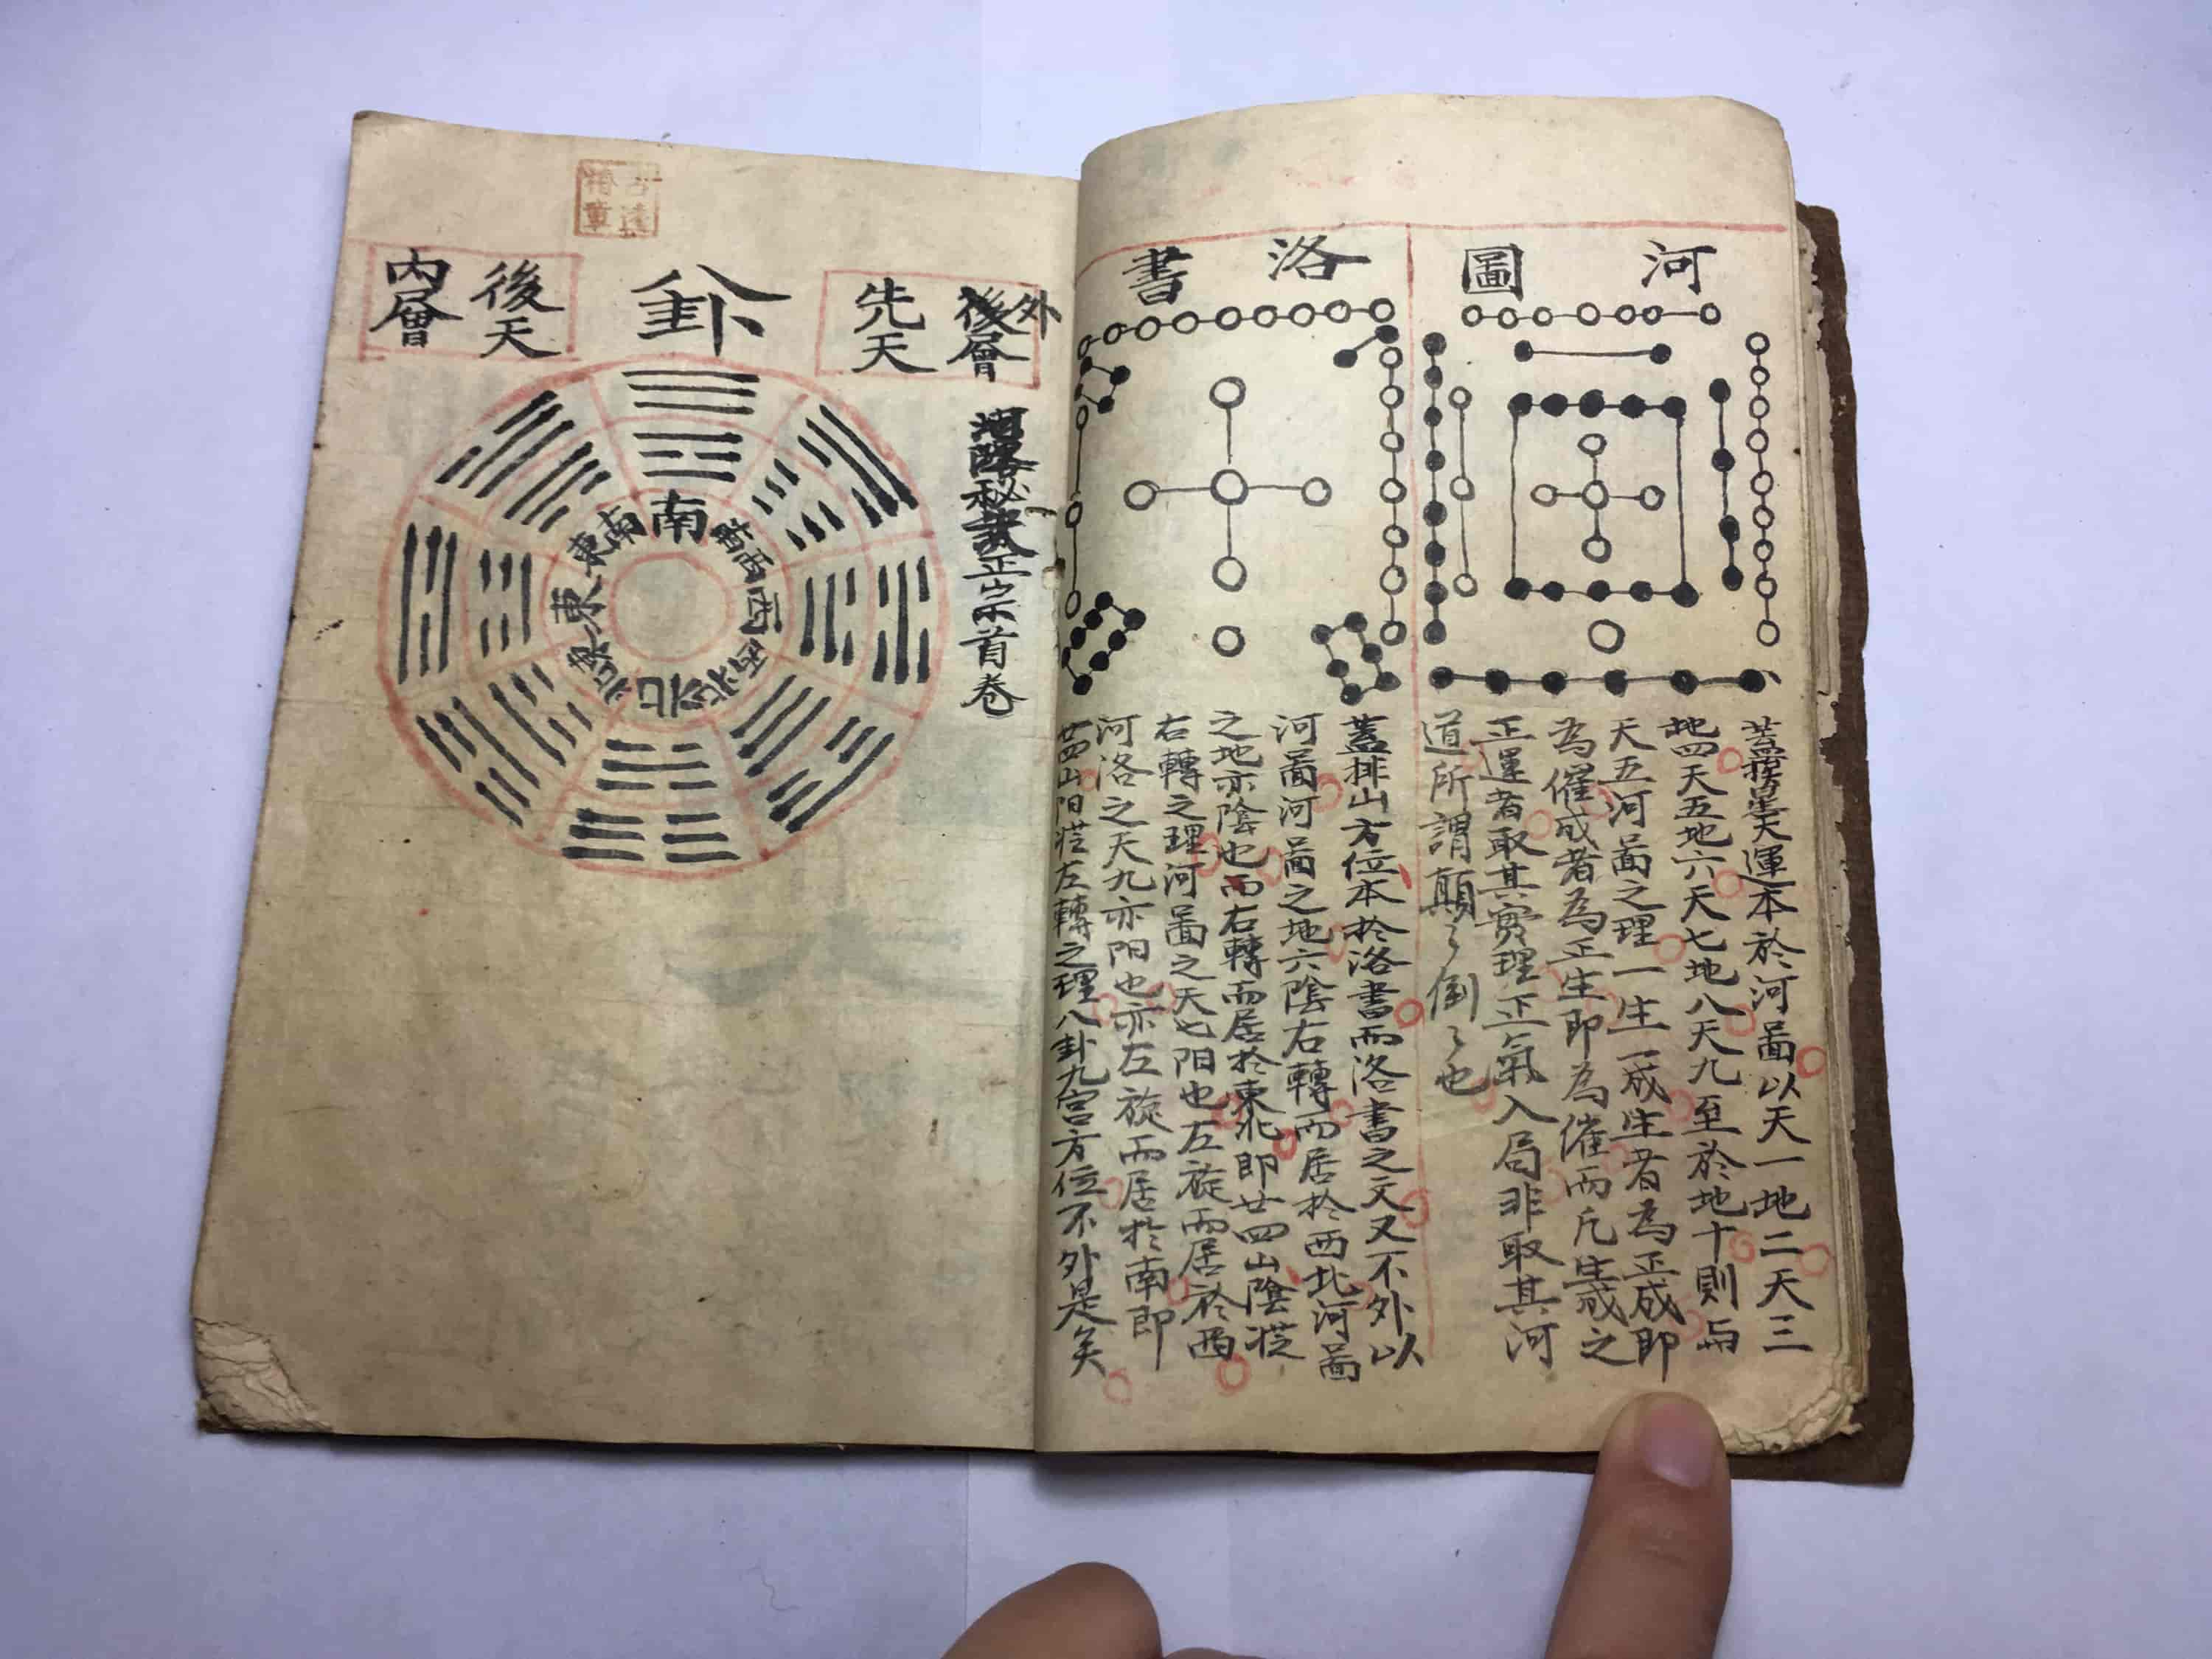 河圖
洛書
蓋撥星天運本於河圖以天一地二天三
地四天五地六天七地八天九至於地十則與
天五河圖之理一生一成生者為正成即
為催成者為正生即為催而凡生成之
正運者取其實理正氣入局非取其河
道所謂顛〻倒〻也
蓋排山方位本於洛書而洛書之文又不外以
河圖河圖之地六陰右轉而居於西北河圖
之地亦陰也而右轉而居於東北即廿四山陰從
右轉之理河圖之天七阳也左旋而居於西
河洛之天九亦阳也亦左旋而居於南即
廿四山阳從左轉之理八卦九宮方位不外是矣
外
後層
先天
八卦
後天
內層
秘訣正宗首卷
南
西南
西
西北
北
東北
東
東南